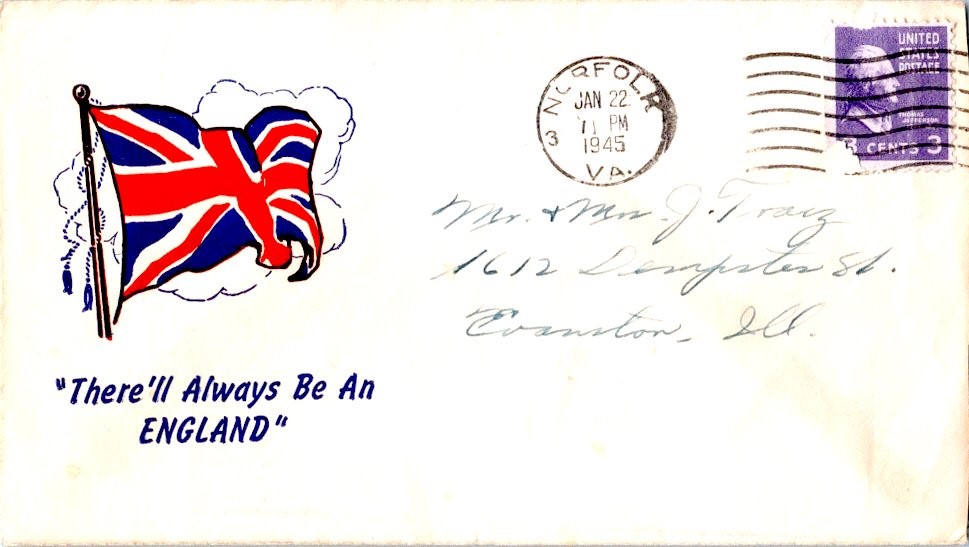 NORFOLK
JAN 22
11 PM
1945
3
VA.
UNITED
STATES
POSTAGE
THOMAS
JEFFERSON
3 CENTS 3
Mr. & Mrs. J. Tracz
1612 Dempster St.
Evanston, Ill.
"There'll Always Be An
ENGLAND"